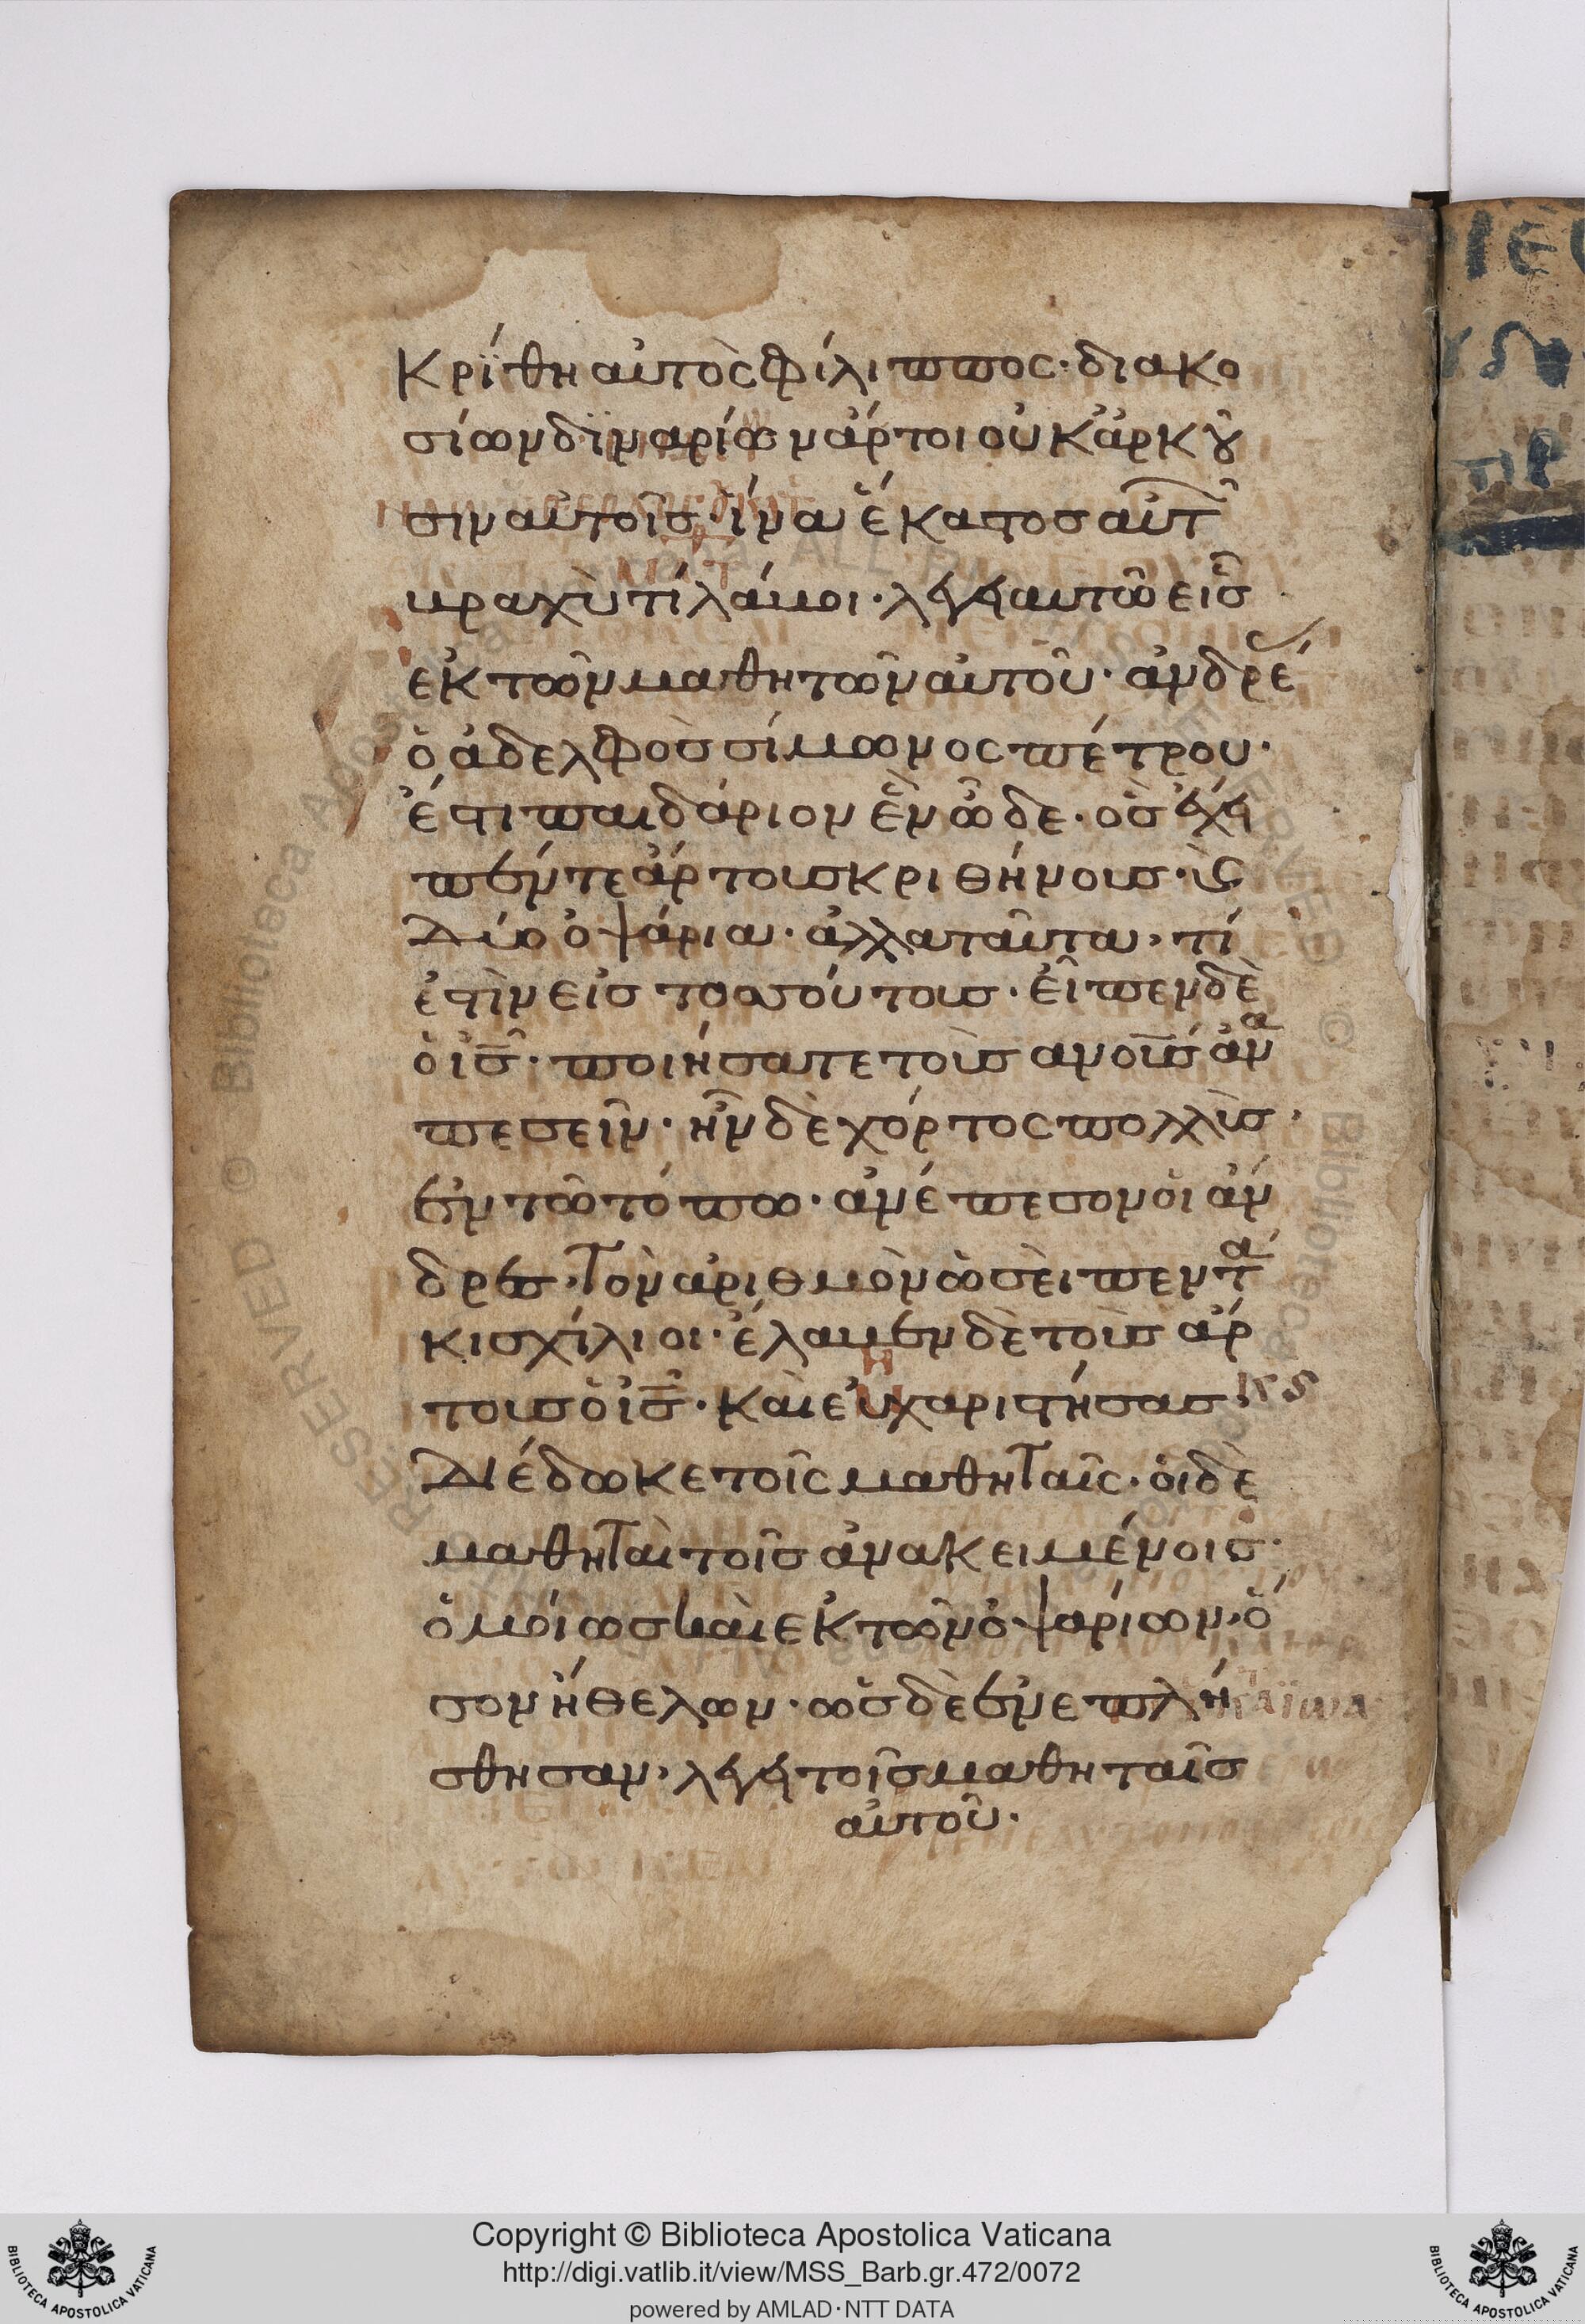 Κρΐθη αὐτὸς Φίλιππος· διακο
σίων δϊναρίων ἄρτοι οὐκ ἄρκȣ̂
σιν αὐτοῖσ· ἵνα ἕκαστοσ αὐτ͂
βραχὺ τί λάβοι· λέγει αυτῶ εἷσ
ἐκ τῶν μαθητῶν αὐτοῦ· ἀνδρέ
ὁ ἀδελφὸσ σίμωνος πέτρου·
ἔστι παιδάριον ἓν ὧδε· ὃσ ἔχει
πέντε ἄρτουσ κριθήνουσ· ϗ
Δύο ὀψάρια· ἀλλα ταῦτα, τί
ἐστὶν εἰσ τοσούτουσ· εἶπεν δὲ
ὁ ισ̅· ποιήσατε τοὺσ ανουσ̅ ἀνα
πεσεῖν· ἦν δὲ χόρτος πολλὺσ,
ἐν τῶ τόπω· ἀνέπεσον ὁι ἄν
δρεσ· Τὸν ἀριθμὸν ὡσὲι πεντα
κισχίλιοι· ἔλαβεν δὲ τοὺσ ἄρ
τουσ ὁ ισ̅· Καὶ ἐυχαριστήσασ
Διέδωκε τοῖς μαθηΤαῖς· ὁι δὲ
μαθηΤαὶ τοῖσ ἀνακειμένοισ·
ὁμοίωσ καὶ ἐκ τῶν ὀψαρίων, ὅ
σον ἤθελων· ὡσ δὲ ἐνεπλή
σθησαν, λέγει τοῖσ μαθηταῖσ
αὐτοῦ·
Copyright © Biblioteca Apostolica Vaticana
http://digi.vatlib.it/view/MSS_Barb.gr.472/0072
powered by AMLAD·NTT DATA
BIBLIOTECA APOSTOLICA VATICANA
BIBLIOTECA APOSTOLICA VATICANA